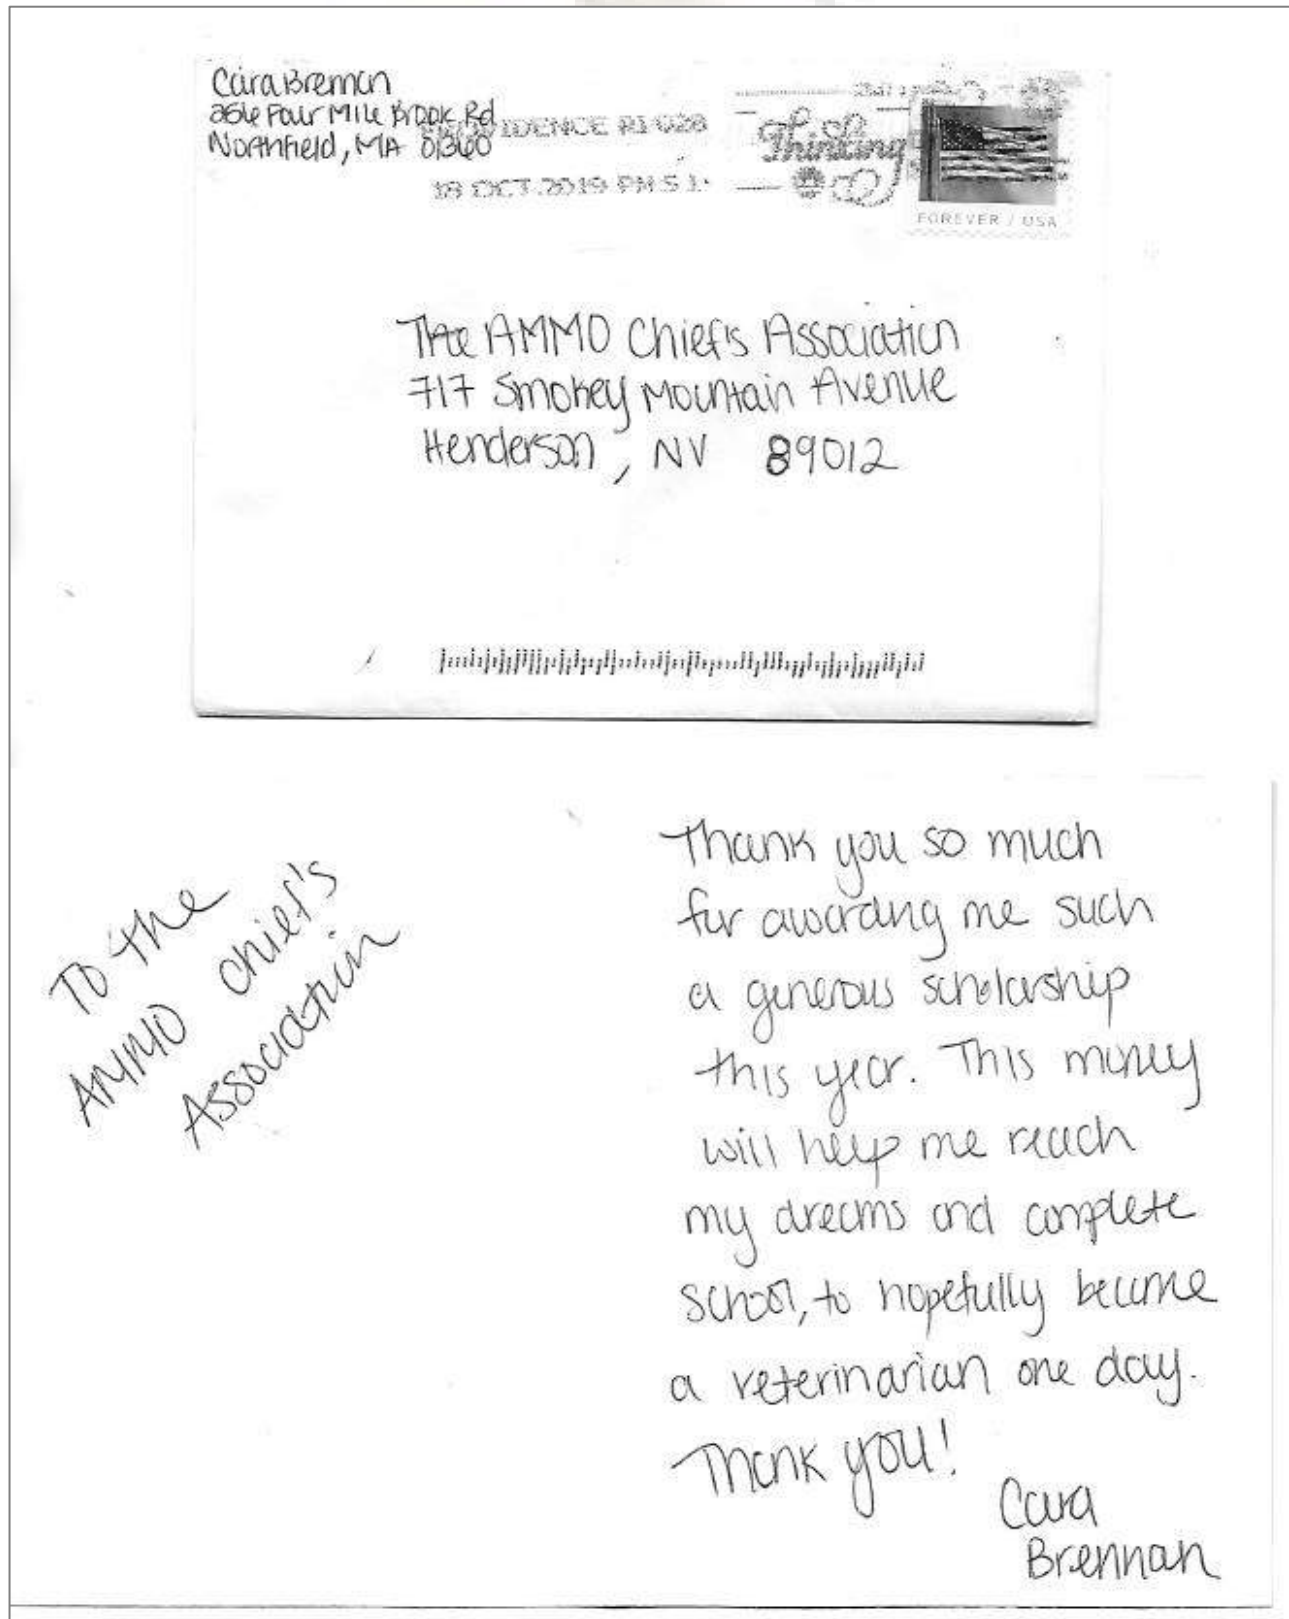 Cara Brennan
256 Four Mile Brook Rd
Northfield, MA 01360
PROVIDENCE RI 028
18 OCT 2019 PM 5 L
Thinking
FOREVER / USA
The AMMO Chief's Association
717 Smokey Mountain Avenue
Henderson, NV 89012
To the
AMMO Chief's
Association
Thank you so much
for awarding me such
a generous scholarship
this year. This money
will help me reach
my dreams and complete
school, to hopefully become
a veterinarian one day.
Thank you!
Cara
Brennan